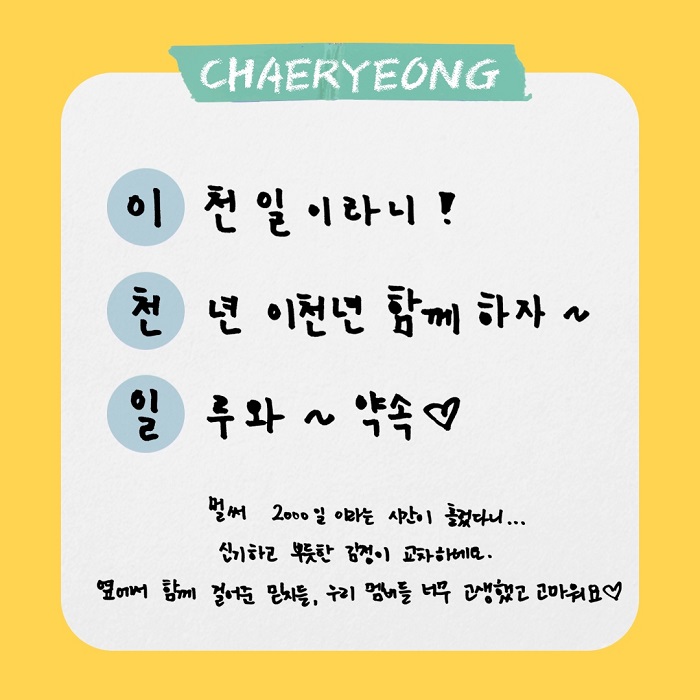 CHAERYEONG
이 천일이라니!
천 년 이천년 함께 하자~
일 루와~ 약속♡
벌써 2000일 이라는 시간이 흘렀다니...
신기하고 뿌듯한 감정이 교차하네요.
옆에서 함께 걸어준 믿지들, 우리 멤버들 너무 고생했고 고마워요♡